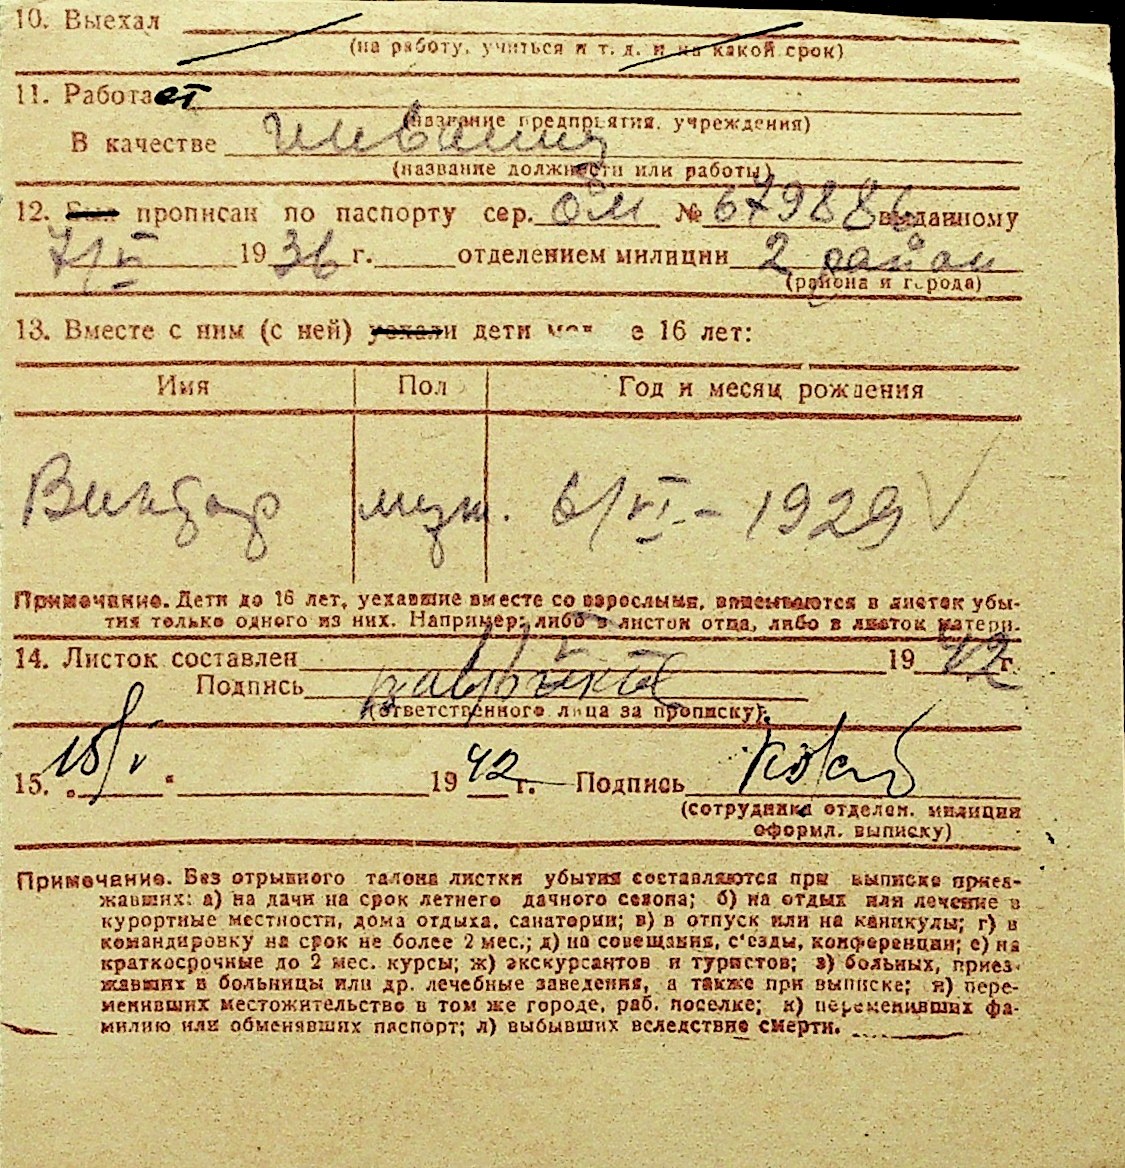 10. Выехал
(на работу, учиться и т. д. и на какой срок)
11. Работает
(название предприятия, учреждения)
В качестве
(название должности или работы)
12. Был прописан по паспорту сер. ОМ № 679886 выданному
7/V 1936 г. отделением милиции 2 район
(района и города)
13. Вместе с ним (с ней) уехали дети е 16 лет:
Имя Пол Год и месяц рождения
Виктор муж. 6/VI - 1929
Примечание. Дети до 16 лет, уехавшие вместе со взрослыми, вписываются в листок убы-
тия только одного из них. Например: либо в листок отца, либо в листок матери.
14. Листок составлен 1942 г.
Подпись
(ответственного лица за прописку)
15. 1942 г. Подпись
(сотрудника отделен. милиции
оформл. выписку)
Примечание. Без отрывного талона листки убытия составляются при выписке приез-
жавших: а) на дачи на срок летнего дачного сезона; б) на отдых или лечение в
курортные местности, дома отдыха, санатории; в) в отпуск или на каникулы; г) в
командировку на срок не более 2 мес.; д) на совещания, с'езды, конференции; е) на
краткосрочные до 2 мес. курсы; ж) экскурсантов и туристов; з) больных, приез-
жавших в больницы или др. лечебные заведения, а также при выписке; и) пере-
менивших местожительство в том же городе, раб. поселке; к) переменивших фа-
милию или обменявших паспорт; л) выбывших вследствие смерти.